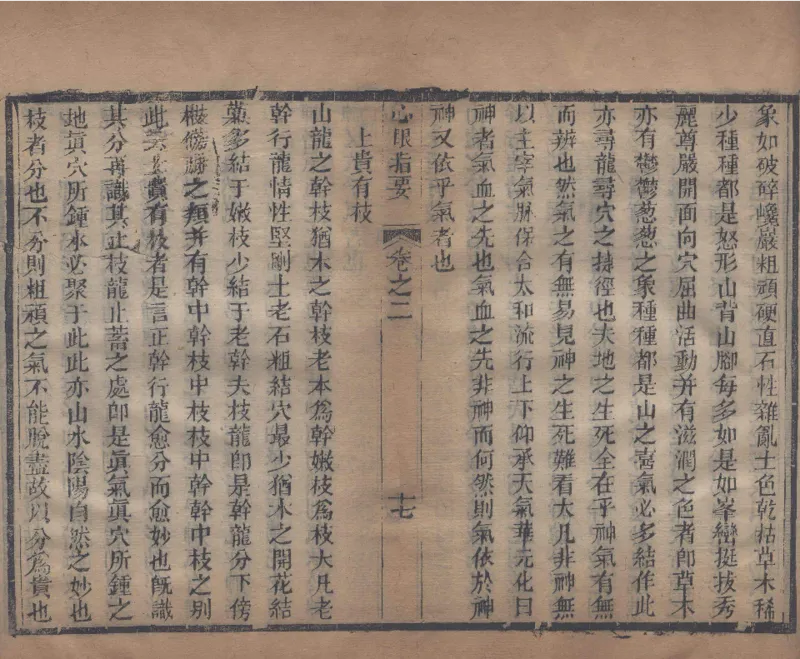 象如破碎巉巖粗頑硬直石性雜亂土色乾枯草木稀
少種種都是怒形山背山腳每多如是如峯巒挺拔秀
麗尊嚴開面向穴屈曲活動并有滋潤之色者卽草木
亦有鬱鬱葱葱之象種種都是山之喜氣必多結作此
亦尋龍尋穴之捷徑也夫地之生死全在乎神氣有無
而辨也然氣之有無易見神之生死難看大凡非神無
以主宰氣脉保合太和流行上下仰承天氣華元化曰
神者氣血之先也氣血之先非神而何然則氣依於神
神又依乎氣者也
心眼指要 卷之二 十七
上貴有枝
山龍之幹枝猶木之幹枝老本爲幹嫩枝爲枝大凡老
幹行龍情性堅剛土老石粗結穴最少猶木之開花結
菓多結于嫩枝少結于老幹夫枝龍卽是幹龍分下傍
之 并有幹中幹枝中枝枝中幹幹中枝之別
此 貴有枝者是言正幹行龍愈分而愈妙也旣識
其分再識其止枝龍止蓄之處卽是眞氣眞穴所鍾之
地眞穴所鍾本必聚于此此亦山水陰陽自然之妙也
枝者分也不分則粗頑之氣不能脫盡故以分爲貴也